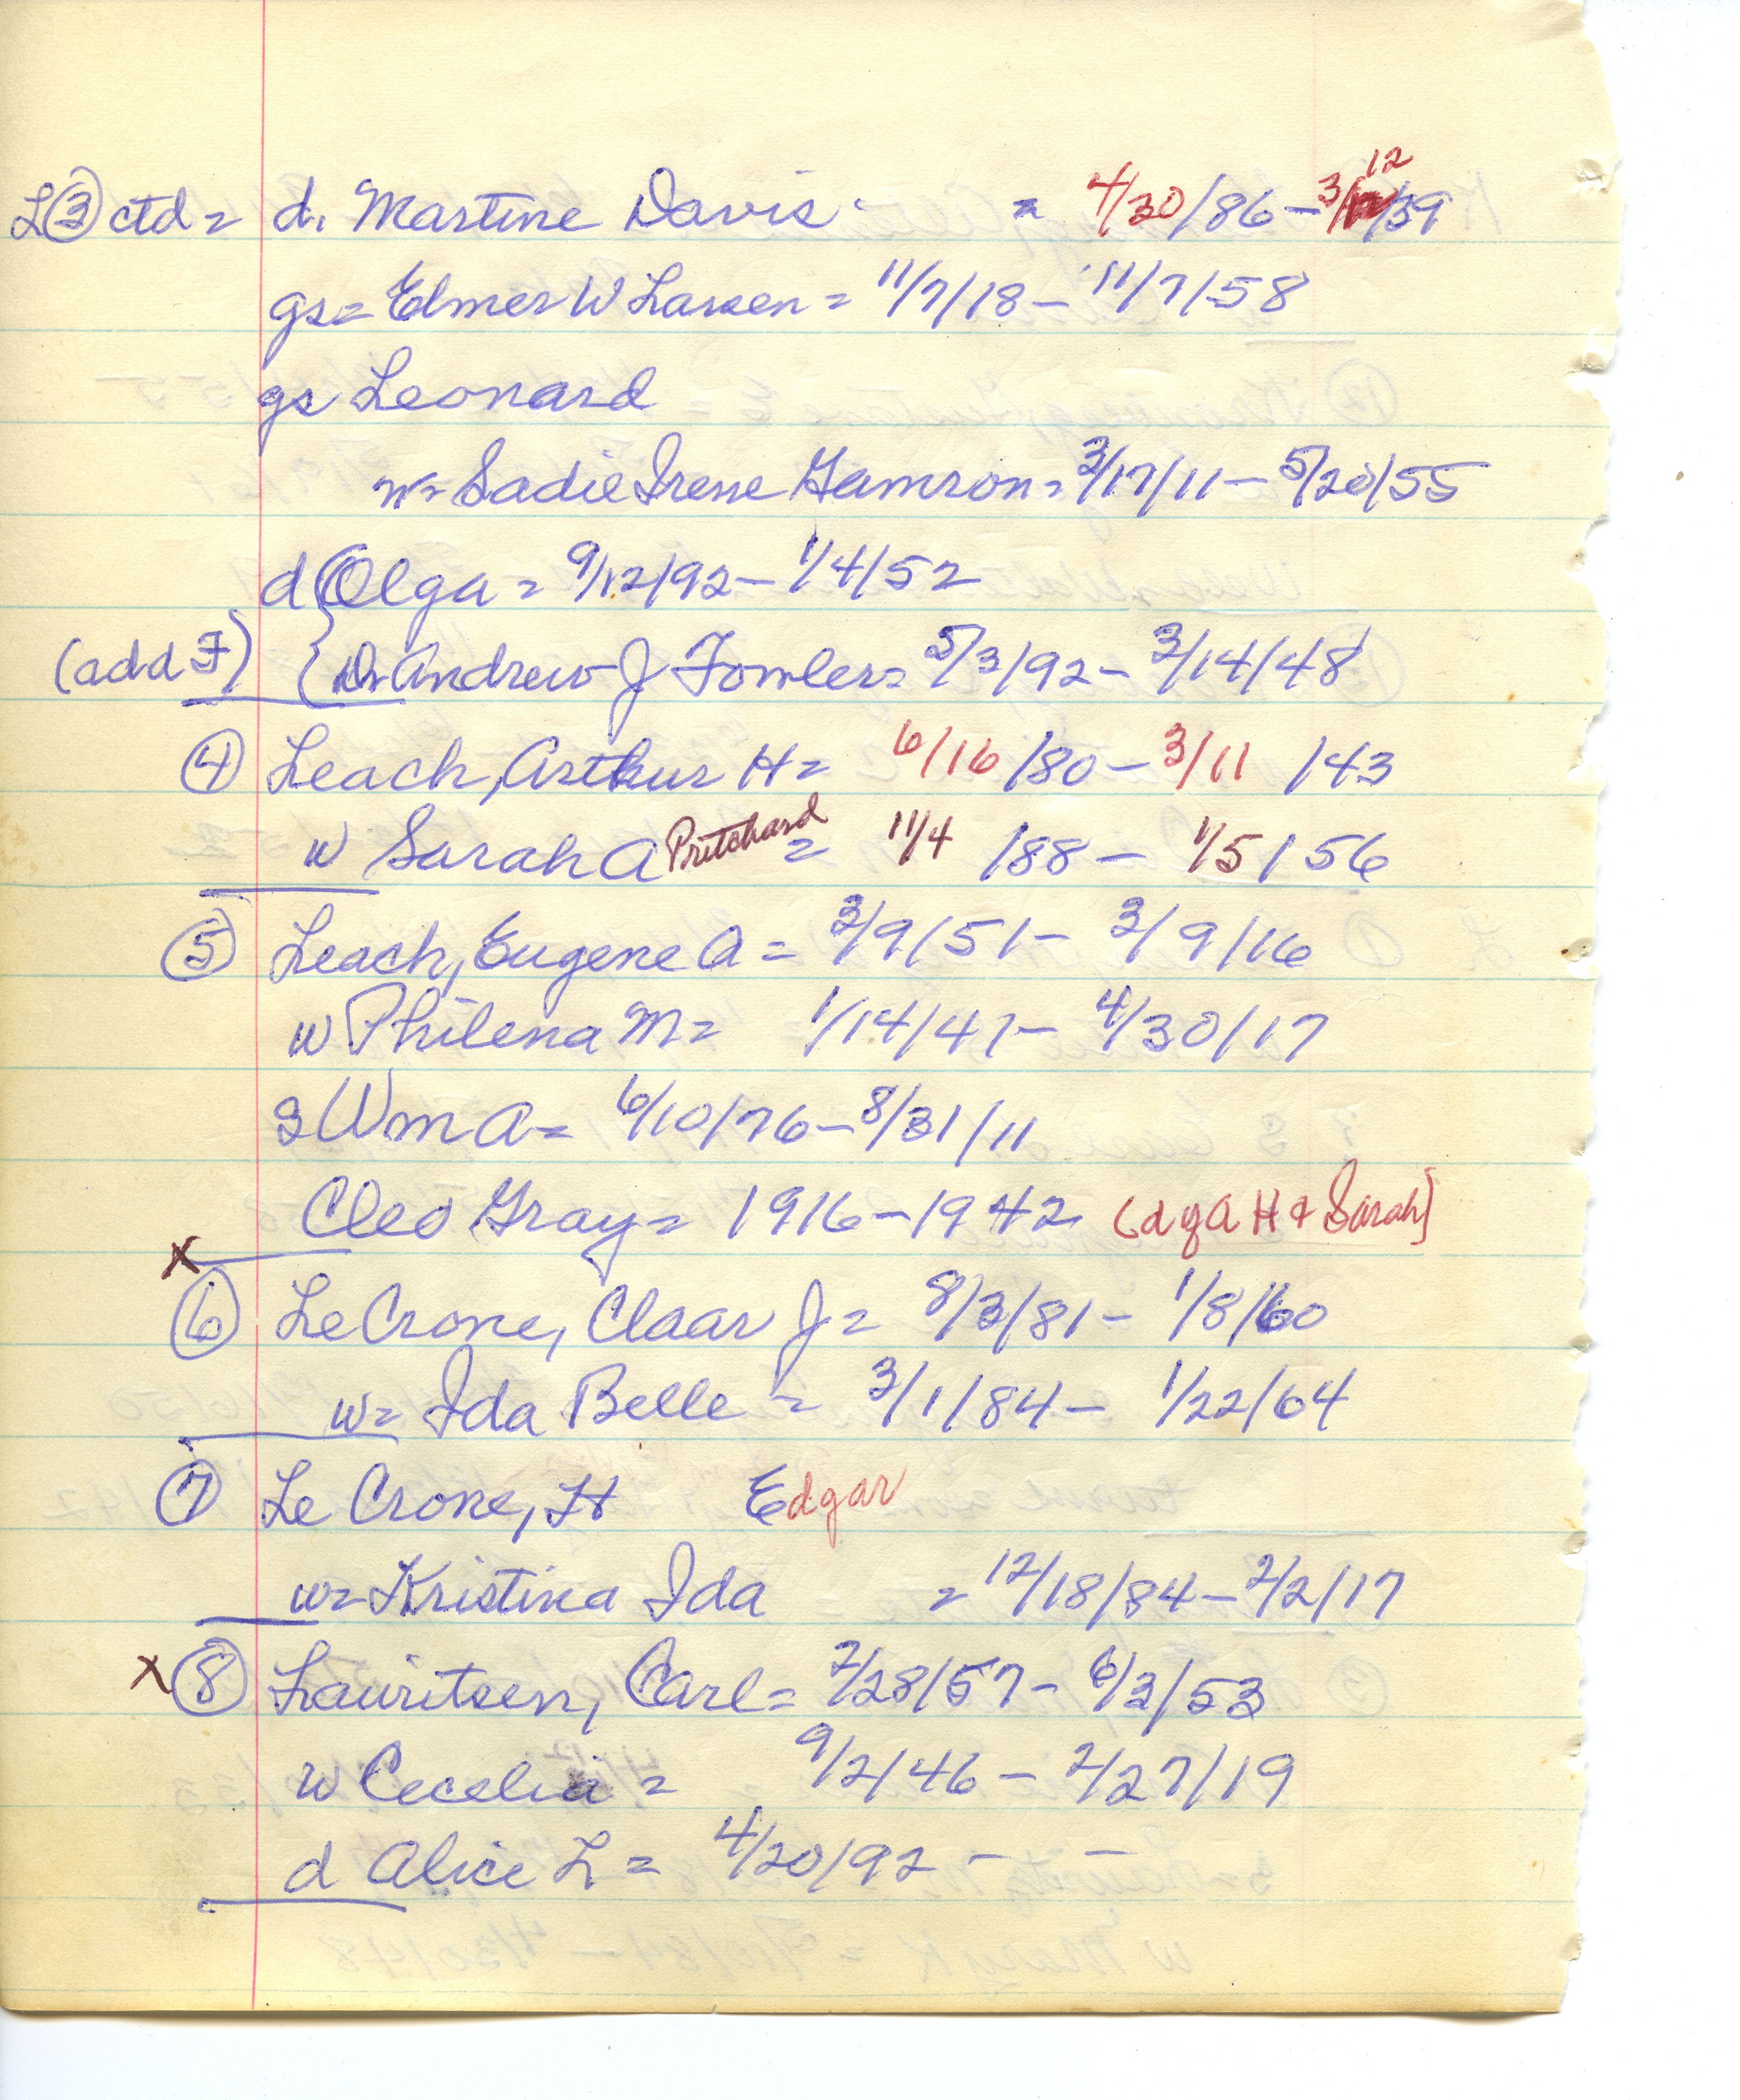 L③ ctd = d. Martine Davis = 4/30/86 - 3/12/39
gs = Elmer W Larsen = 11/7/18 - 11/7/58
gs Leonard
w = Sadie Irene Gamron = 3/17/11 - 5/20/55
d Olga = 9/12/92 - 1/4/52
(add F) { Dr Andrew J Fowler = 5/3/92 - 3/14/48
④ Leach, Arthur H = 6/16/80 - 3/11/43
w Sarah A Pritchard = 11/4/88 - 1/5/56
⑤ Leach, Eugene A = 3/9/51 - 3/9/16
w Philena M = 1/14/47 - 4/30/17
S Wm A = 6/10/76 - 8/31/11
Cleo Gray = 1916 - 1942 (d of A H & Sarah)
X
⑥ LeCrone, Claar J = 8/3/81 - 1/8/60
w = Ida Belle = 3/1/84 - 1/22/64
⑦ Le Crone, H Edgar
w = Kristina Ida = 12/18/84 - 2/2/17
X ⑧ Lauritsen, Carl = 7/28/57 - 6/3/53
w Cecelia = 9/2/46 - 2/27/19
d Alice L = 4/20/92 - -